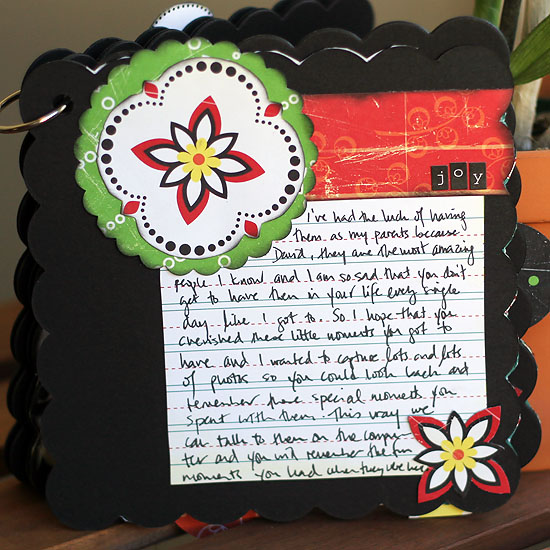 joy
I've had the luck of having
them as my parents because
David, they are the most amazing
people I know and I am so sad that you don't
get to have them in your life every single
day like I got to. So I hope that you
cherished these little moments you got to
have and I wanted to capture lots and lots
of photos so you could look back and
remember these special moments you
spent with them. This way we
can talk to them on the compu-
ter and you will remember the fun
moments you had when they were here